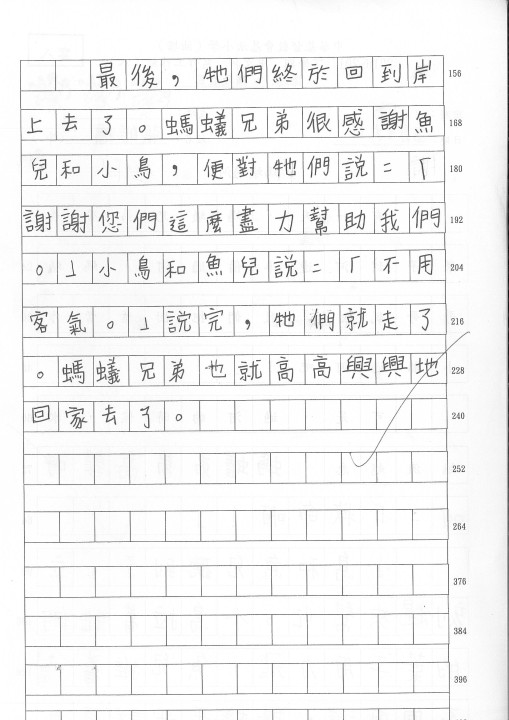 最後，牠們終於回到岸 156
上去了。螞蟻兄弟很感謝魚 168
兒和小鳥，便對牠們說：「 180
謝謝您們這麼盡力幫助我們 192
。」小鳥和魚兒說：「不用 204
客氣。」說完，牠們就走了 216
。螞蟻兄弟也就高高興興地 228
回家去了。 240
252
264
376
384
396